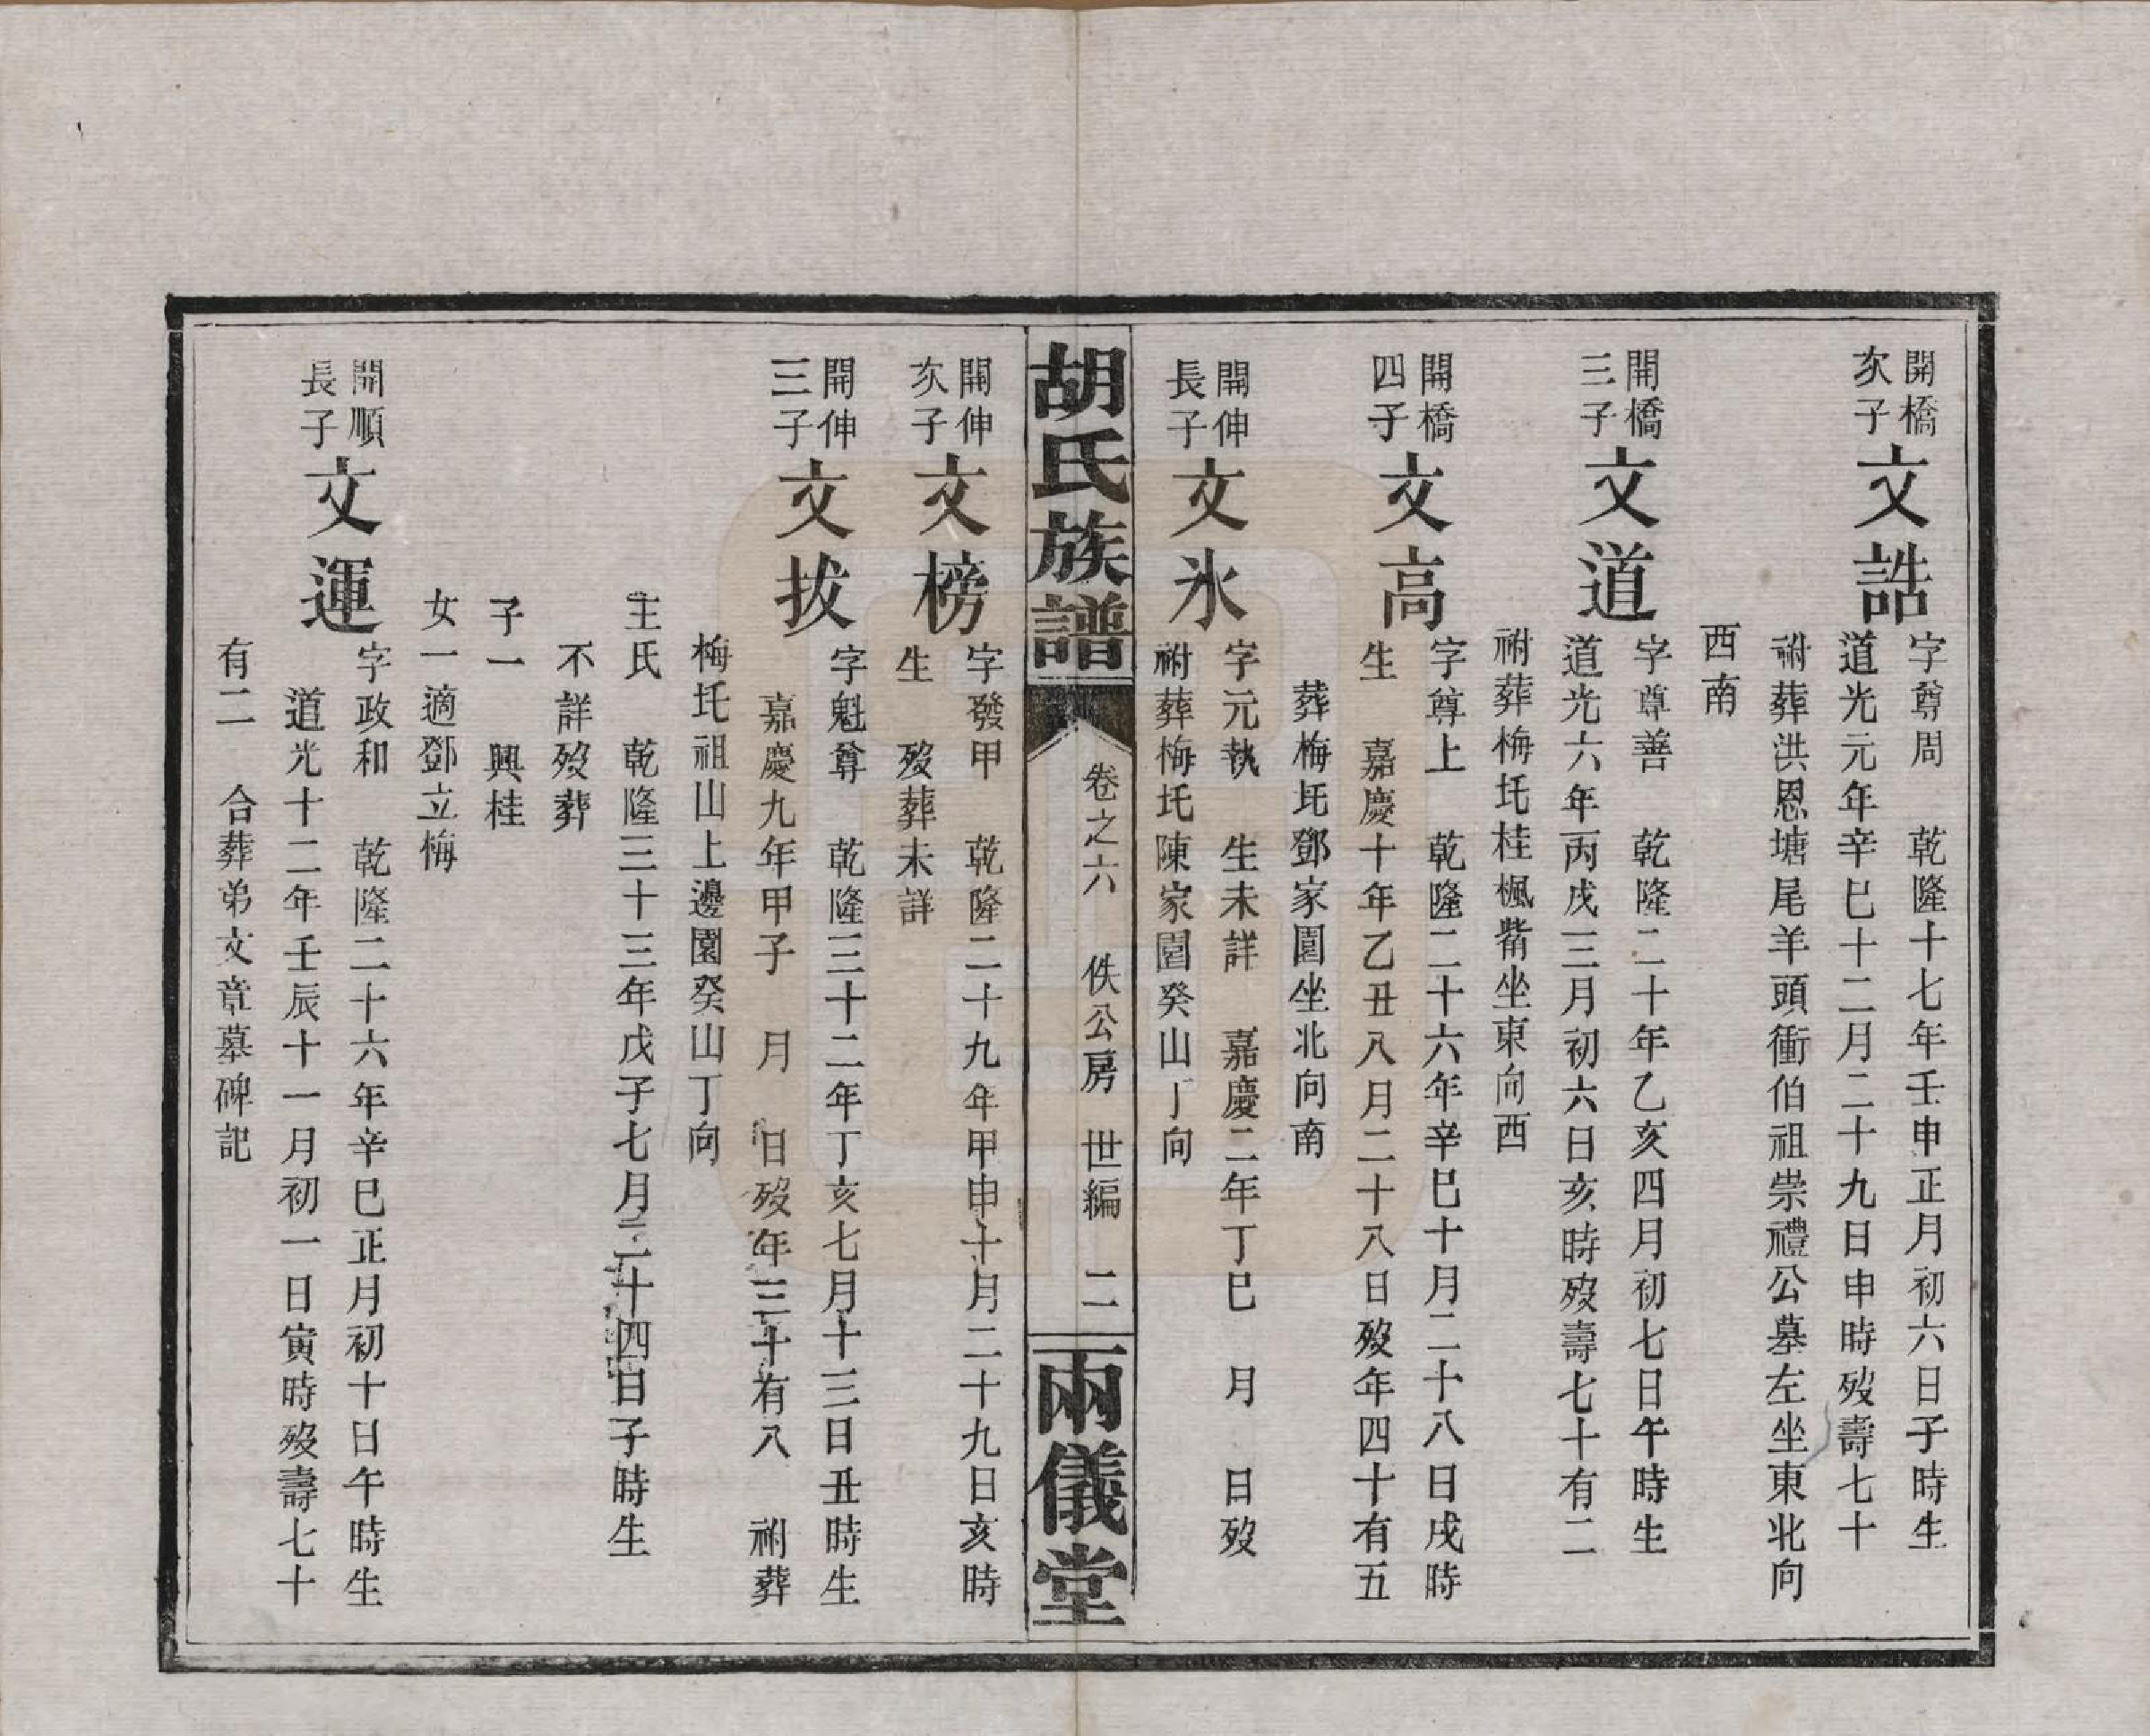 開橋
次子
文誥
字尊周　乾隆十七年壬申正月初六日子時生
道光元年辛巳十二月二十九日申時歿壽七十
祔葬洪恩塘尾羊頭衝伯祖崇禮公墓左坐東北向
西南
開橋
三子
文道
字尊善　乾隆二十年乙亥四月初七日午時生
道光六年丙戌三月初六日亥時歿壽七十有二
祔葬梅圫桂楓觜坐東向西
開橋
四子
文高
字尊上　乾隆二十六年辛巳十月二十八日戌時
生　嘉慶十年乙丑八月二十八日歿年四十有五
葬梅圫鄧家園坐北向南
開伸
長子
文氷
字元執　生未詳　嘉慶二年丁巳　月　日歿
祔葬梅圫陳家園癸山丁向
胡氏族譜
卷之六　佚公房　世編　二
兩儀堂
開伸
次子
文榜
字發甲　乾隆二十九年甲申十月二十九日亥時
生　歿葬未詳
開伸
三子
文拔
字魁尊　乾隆三十二年丁亥七月十三日丑時生
嘉慶九年甲子　月　日歿年三十有八　祔葬
梅圫祖山上邊園癸山丁向
王氏　乾隆三十三年戊子七月二十四日子時生
不詳歿葬
子一　興桂
女一適鄧立梅
開順
長子
文運
字政和　乾隆二十六年辛巳正月初十日午時生
道光十二年壬辰十一月初一日寅時歿壽七十
有二　合葬弟文章墓碑記